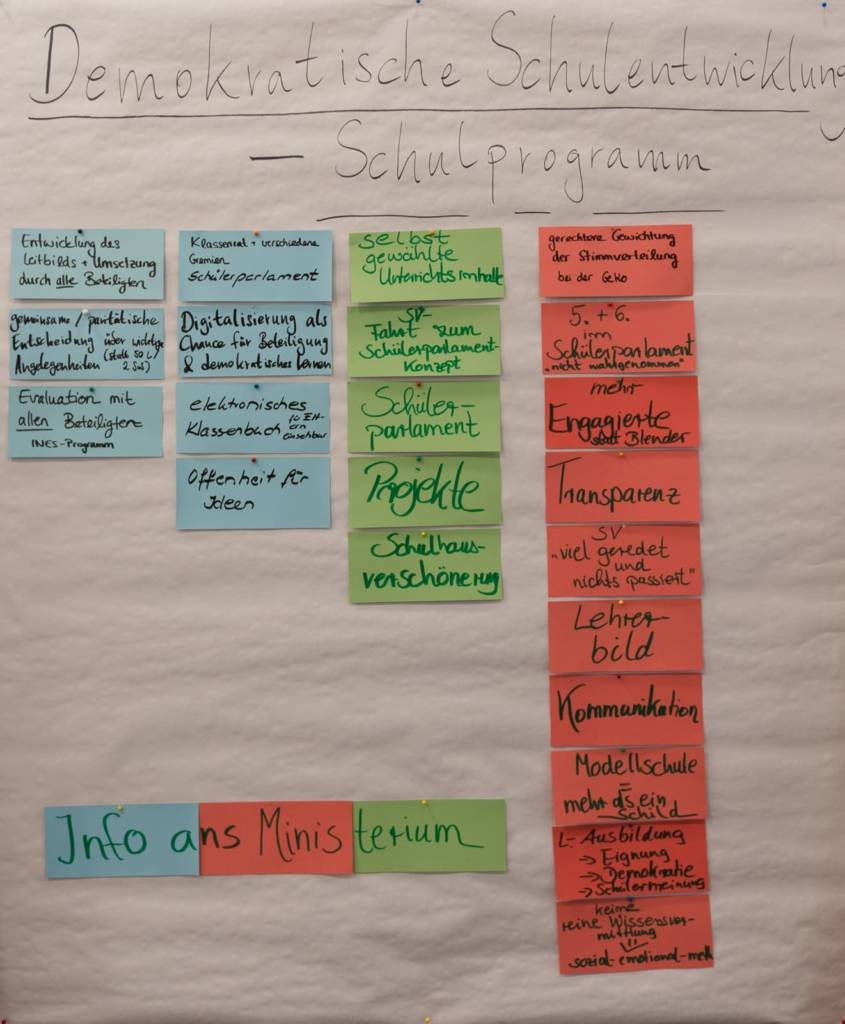 Demokratische Schulentwicklung
– Schulprogramm
Entwicklung des
Leitbilds + Umsetzung
durch alle Beteiligten
gemeinsame / paritätische
Entscheidung über wichtige
Angelegenheiten (statt 50 L /
2 SuS)
Evaluation mit
allen Beteiligten
INES-Programm
Klassenrat + verschiedene
Gremien
Schülerparlament
Digitalisierung als
Chance für Beteiligung
& demokratisches Lernen
elektronisches
Klassenbuch für Elt-
ern
einsehbar
Offenheit für
Ideen
selbst
gewählte
Unterrichtsinhalte
SV-
Fahrt zum
Schülerparlament-
Konzept
Schüler-
parlament
Projekte
Schulhaus-
verschönerung
gerechtere Gewichtung
der Stimmverteilung
bei der GeKo
5. + 6.
im
Schülerparlament
"nicht wahrgenommen"
mehr
Engagierte
statt Blender
Transparenz
SV
"viel geredet
und
nichts passiert"
Lehrer-
bild
Kommunikation
Modellschule
=
mehr als ein
Schild
L-Ausbildung
→ Eignung
→ Demokratie
→ Schülermeinung
keine
reine Wissensver-
mittlung
sozial-emotional-
Info ans Ministerium